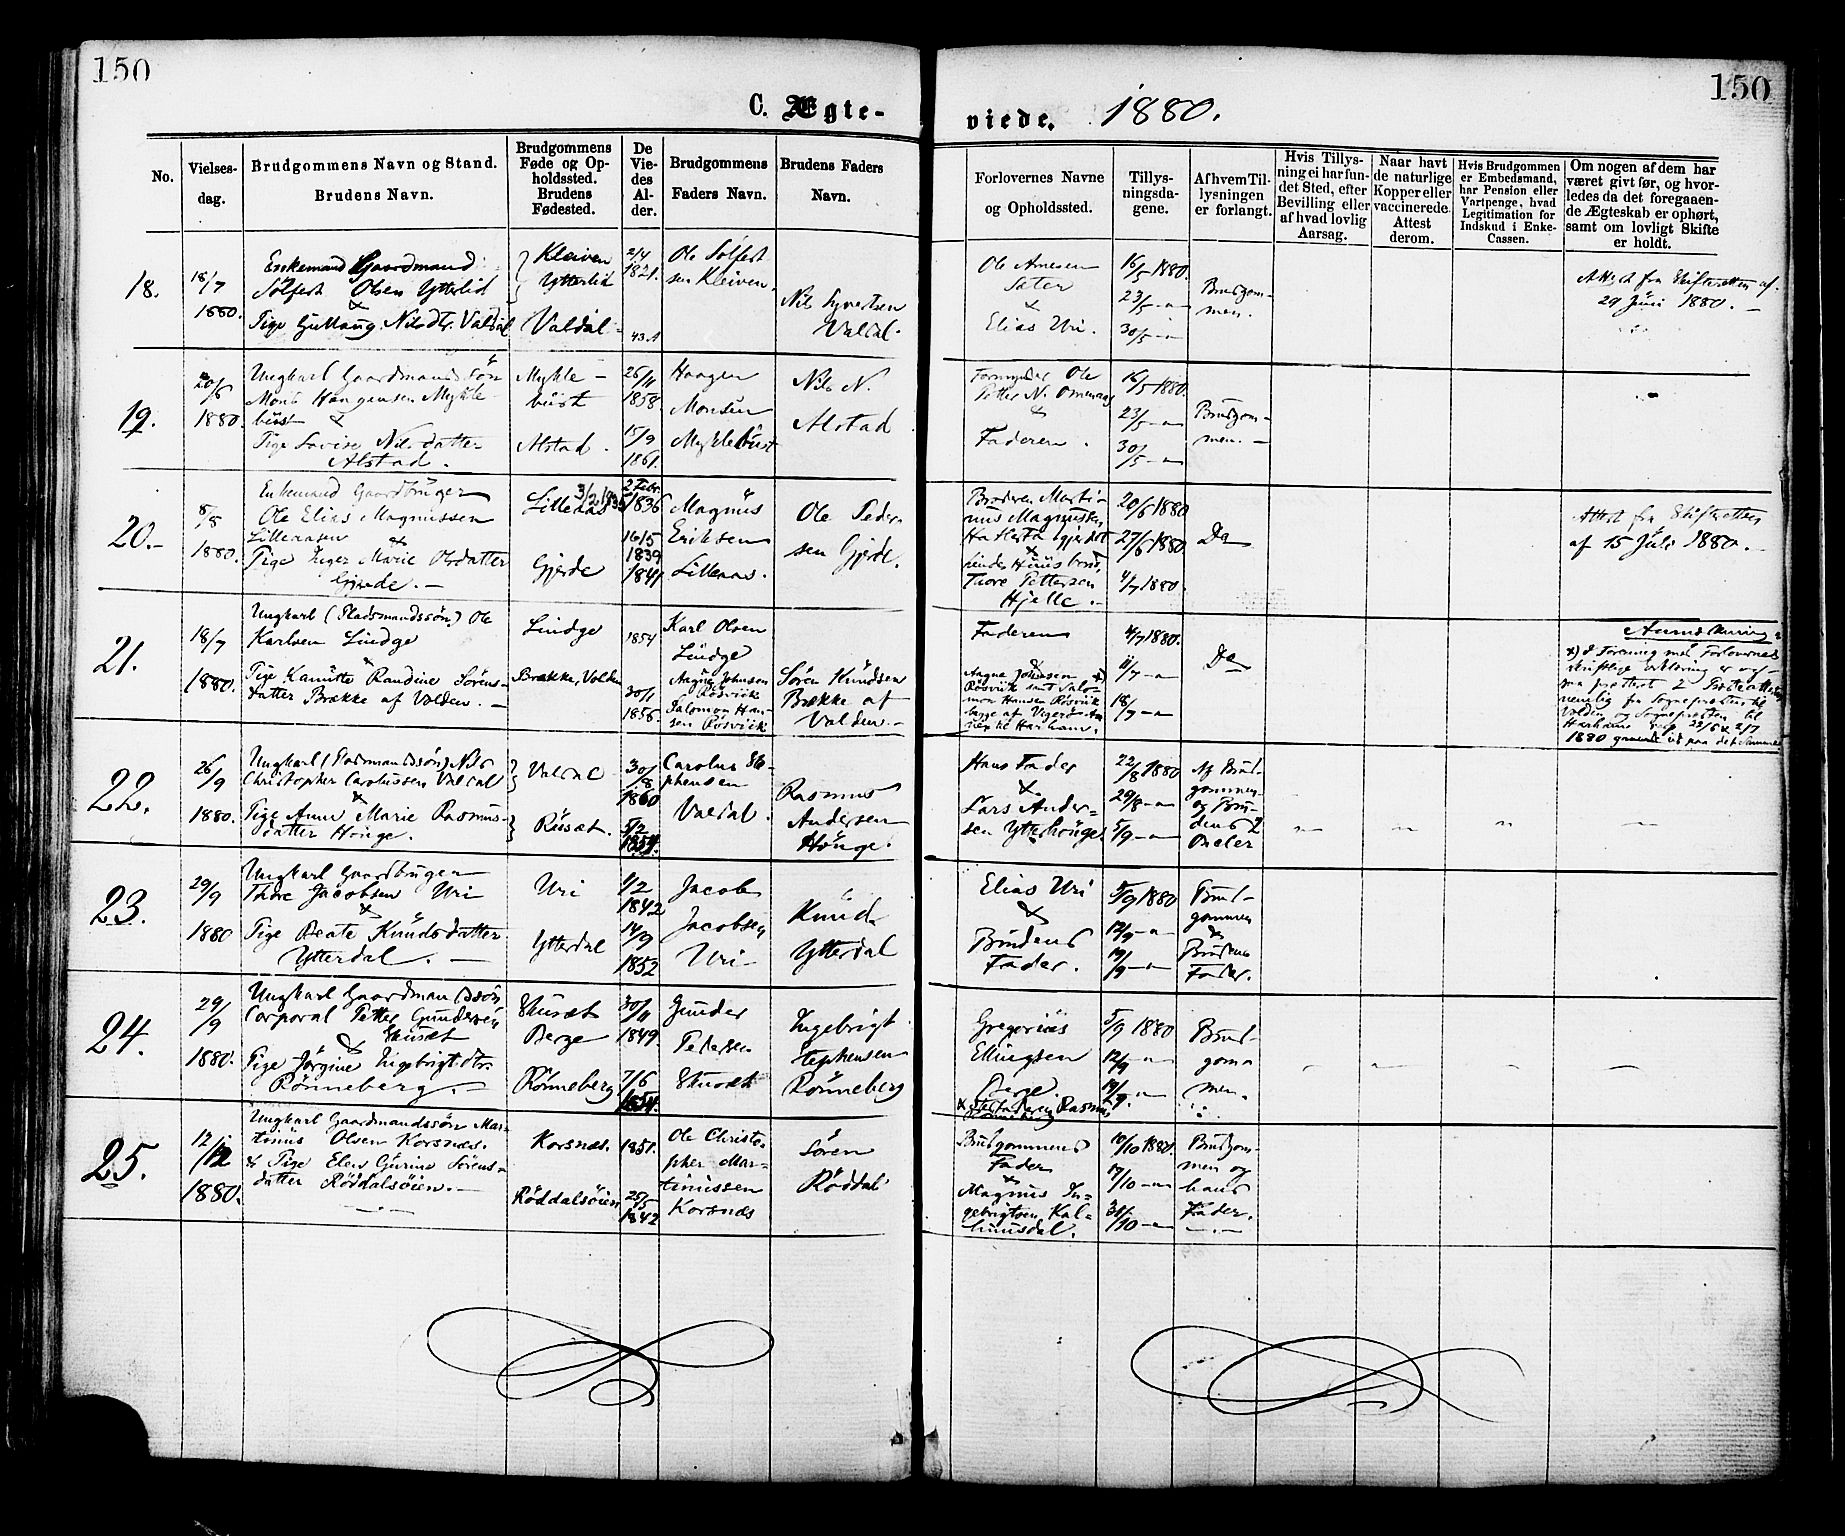 150
150
C. Ægte-
viede. 1880.
No.
Vielses-
dag.
Brudgommens Navn og Stand.
Brudens Navn.
Brudgommens
Føde og Op-
holdssted.
Brudens
Fødested.
De
Vie-
des
Al-
der.
Brudgommens
Faders Navn.
Brudens Faders
Navn.
Forlovernes Navne
og Opholdssted.
Tillys-
ningsda-
gene.
Af hvem Til-
lysningen
er forlangt.
Hvis Tillys-
ning ei har fun-
det Sted, efter
Bevilling eller
af hvad lovlig
Aarsag.
Naar havt
de naturlige
Kopper eller
vaccinerede.
Attest
derom.
Hvis Brudgommen
er Embedsmand,
har Pension eller
Vartpenge, hvad
Legitimation for
Indskud i Enke-
Cassen.
Om nogen af dem har
været givt før, og hvor-
ledes da det foregaaen-
de Ægteskab er ophørt,
samt om lovligt Skifte
er holdt.
18.
18/7
1880.
Enkemand Gaardmand
Sølfest Olsen Ytterlid
&
Pige Nilsdtr. Valdal
Kleiven
Ytterlid
Valdal
2/4
1821.
43 A
Ole Sølfest
sen Kleiven.
Nils Syvertsen
Valdal.
Ole Arnesen
Sæter
&
Elias Uri.
16/5 1880.
23/5 - "
30/5 - "
Brudgom-
men.
Attest fra Skifteretten af
29 Juni 1880.
19.
20/6
1880.
Ungkarl Gaardmands Søn
Mons Haagensen Mykle-
bust &
Pige Lovise Nilsdatter
Alstad.
Mykle-
bust
Alstad.
26/11
1858.
15/9
1861.
Haagen
Monsen
Myklebust
Nils N.
Alstad
Formynder Ole
Petter N. Omenaas
&
Faderen.
16/5 1880.
23/5 - "
30/5 - "
Brudgom-
men.
20.
8/8
1880.
Enkemand Gaardbruger
Ole Elias Magnussen
Lilleaasen
&
Pige Inger Marie Olsdatter
Gjerde.
3/2 1836
Lilleaas
Gjerde
2 Febr.
1836
16/5
1839
1841
Magnus
Eriksen
Lilleaas.
Ole Peder-
sen Gjerde.
Broderen Marti-
nus Magnussen
&
Thore Pettersen
Hjelle.
20/6 1880
27/6 1880
4/7 1880.
Do
Attest fra Skifteretten
af 15 Juli 1880.
21.
18/7
1880.
Ungkarl (Pladsmandssøn) Ole
Karlsen Lindge
&
Pige Randine Sørens-
datter Brække af Volden.
Lindge
Brække, Volden
1854
30/1
1856.
Karl Olsen
Lindge
Johnsen
Røsviik
Salomon Han-
sen Røsviik
Søren Knudsen
Brække af
Volden
Faderen
&
Johnsen
Røsviik samt Salo-
mon Hansen Røsviik
til Harham.
4/7 1880.
11/7 - "
18/7 - "
Do
Anmærkning:
x) I Forening med Forlovernes
skriftlige Erklæring er og-
saa
nemlig fra Sognepresten til
Volden og Sognepresten til
Harham
1880
22.
26/9
1880.
Ungkarl (Pladsmandssøn) Nils
Christopher Carolussen Valdal
&
Pige Anne Marie Rasmus-
datter Hønge.
Valdal
Rusæt.
30/8
1860
5/2
1854.
Carolus Ste-
phensen
Valdal.
Rasmus
Andersen
Hønge.
Hans Fader
&
Lars Ander-
sen Ytterhønge
22/8 1880
29/8 - "
5/9 - "
Af Brud-
gommen
og Bru-
dens
"
"
"
23.
29/9
1880
Ungkarl Gaardbruger
Thore Jacobsen Uri
&
Pige Beate Knudsdatter
Ytterdal.
Uri
Ytterdal
1/2
1842
14/9
1852
Jacob
Jacobsen
Uri
Knud
Ytterdal
Elias Uri
&
Brudens
Fader.
5/9 1880
12/9 - "
19/9 - "
Brud-
gommen
&
Brudens
Fader.
24.
29/9
1880.
Ungkarl Gaardmandssøn
Corporal Petter Gundersen
& Skusæt
Pige Jørgine Ingebrigtdtr.
Rønneberg.
Skusæt
Berge
Rønneberg
30/11
1849.
7/6
1854.
Gunder
Petersen
Skusæt
Ingebrigt
Stephensen
Rønneberg
Gregorius
Ellingsen
Berge
Rasmus
Rønneberg
5/9 1880
12/9 - "
19/9. - "
Brud-
gom-
men.
25.
12/12
1880.
Ungkarl Gaardmandssøn Mar-
tinus Olsen Korsnæs.
& Pige Elen Gurine Sørens-
datter Røddalsøien.
Korsnæs.
Røddalsøien
1851.
25/5
1842
Ole Christo-
pher Mar-
tinussen
Korsnæs
Søren
Røddal
Brudgommens
Fader
&
Magnus In-
gebrigtsen Kal-
husdal.
10/10 1880.
17/10 - "
31/10 - "
Brudgom-
men og
hans
Fader.